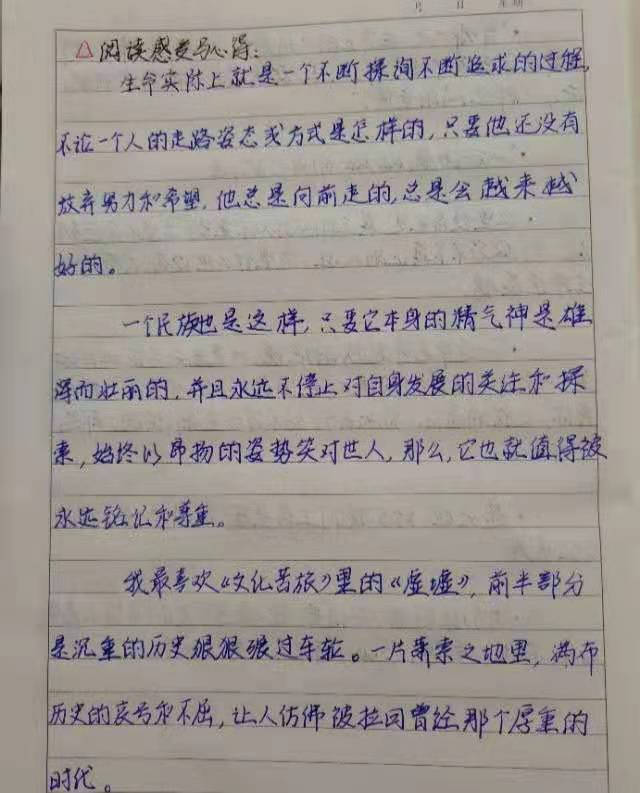 月 日 星期
△阅读感受与心得:
生命实际上就是一个不断探询不断追求的过程,
不论一个人的走路姿态或方式是怎样的,只要他还没有
放弃努力和希望,他总是向前走的,总是会越来越
好的。
一个民族也是这样,只要它本身的精气神是雄
浑而壮丽的,并且永远不停止对自身发展的关注和探
索,始终以昂扬的姿势笑对世人,那么,它也就值得被
永远铭记和尊重。
我最喜欢《文化苦旅》里的《虚墟》,前半部分
是沉重的历史狠狠碾过车轮。一片萧索之地里,满布
历史的哀号和不屈,让人仿佛被拉回曾经那个厚重的
时代。